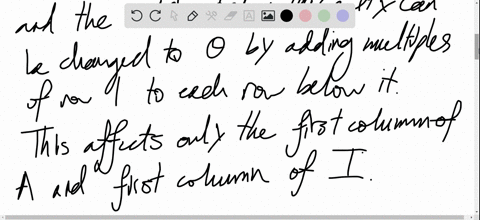 and the
be changed to 0 by adding multiples
of row 1 to each row below it.
This affects only the first column of
A and first column of I.